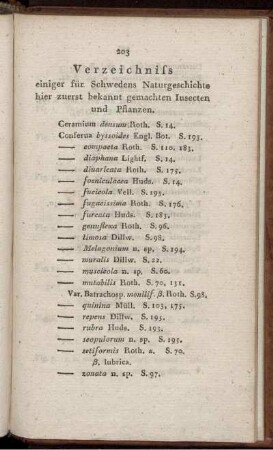 203
Verzeichniſs
einiger für Schwedens Naturgeschichte
hier zuerst bekannt gemachten Insecten
und Pflanzen.
Ceramium densum Roth. S. 14.
Conferva byssoides Engl. Bot. S. 193.
— compacta Roth. S. 110, 183.
— diaphana Lightf. S. 14.
— divaricata Roth. S. 175.
— foeniculacea Huds. S. 14.
— fucicola Vell. S. 195.
— fugacissima Roth. S. 176.
— furcata Huds. S. 183.
— genuflexa Roth. S. 96.
— limosa Dillw. S. 98.
— Melagonium n. sp. S. 194.
— muralis Dillw. S. 22.
— muscicola n. sp. S. 60.
— mutabilis Roth. S. 70, 131.
Var. Batrachosp. monilif. β. Roth. S. 98.
— quinina Müll. S. 103, 175.
— repens Dillw. S. 195.
— rubra Huds. S. 195.
— scopulorum n. sp. S. 195.
— setiformis Roth. α. S. 70.
β. lubrica.
— zonata n. sp. S. 97.